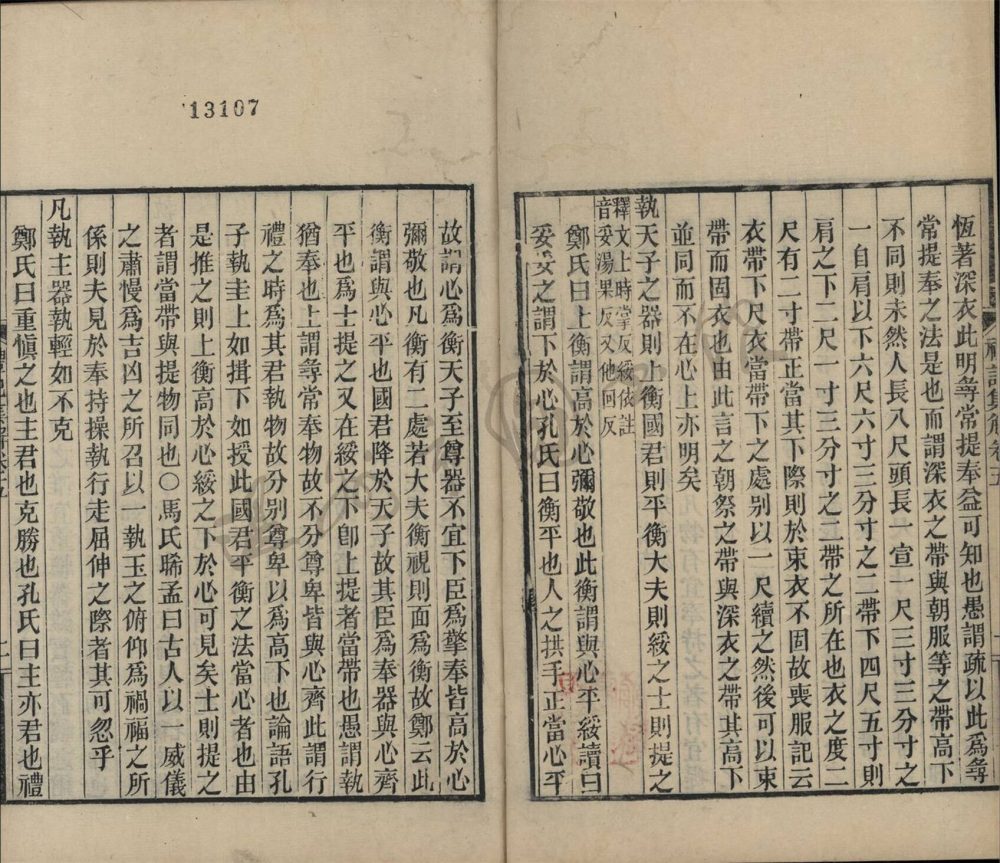 恆著深衣此明尋常提奉益可知也愚謂疏以此爲尋
常提奉之法是也而謂深衣之帶與朝服等之帶高下
不同則未然人長八尺頭長一宣一尺三寸三分寸之
一自肩以下六尺六寸三分寸之二帶下四尺五寸則
肩之下二尺一寸三分寸之二帶之所在也衣之度二
尺有二寸帶正當其下際則於束衣不固故喪服記云
衣帶下尺衣當帶下之處别以一尺續之然後可以束
帶而固衣也由此言之朝祭之帶與深衣之帶其高下
並同而不在心上亦明矣
執天子之器則上衡國君則平衡大夫則綏之士則提之
釋文上時掌反綏依註
音妥湯果反又他回反
鄭氏曰上衡謂高於心彌敬也此衡謂與心平綏讀曰
妥妥之謂下於心孔氏曰衡平也人之拱手正當心平
故謂心爲衡天子至尊器不宜下臣爲擎奉皆高於心
彌敬也凡衡有二處若大夫衡視則面爲衡故鄭云此
衡謂與心平也國君降於天子故其臣爲奉器與心齊
平也爲士提之又在綏之下卽上提者當帶也愚謂執
猶奉也上謂尋常奉物故不分尊卑皆與心齊此謂行
禮之時爲其君執物故分别尊卑以爲高下也論語孔
子執圭上如揖下如授此國君平衡之法當心者也由
是推之則上衡高於心綏之下於心可見矣士則提之
者謂當帶與提物同也○馬氏睎孟曰古人以一威儀
之肅慢爲吉凶之所召以一執玉之俯仰爲禍福之所
係則夫見於奉持操執行走屈伸之際者其可忽乎
凡執主器執輕如不克
鄭氏曰重慎之也主君也克勝也孔氏曰主亦君也禮
13107